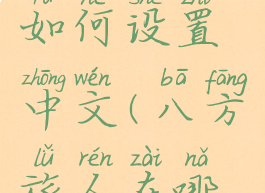 rú hé shè zhì
如何设置
zhōng wén bā fāng
中文(八方
lǚ rén zài nǎ
旅人在哪